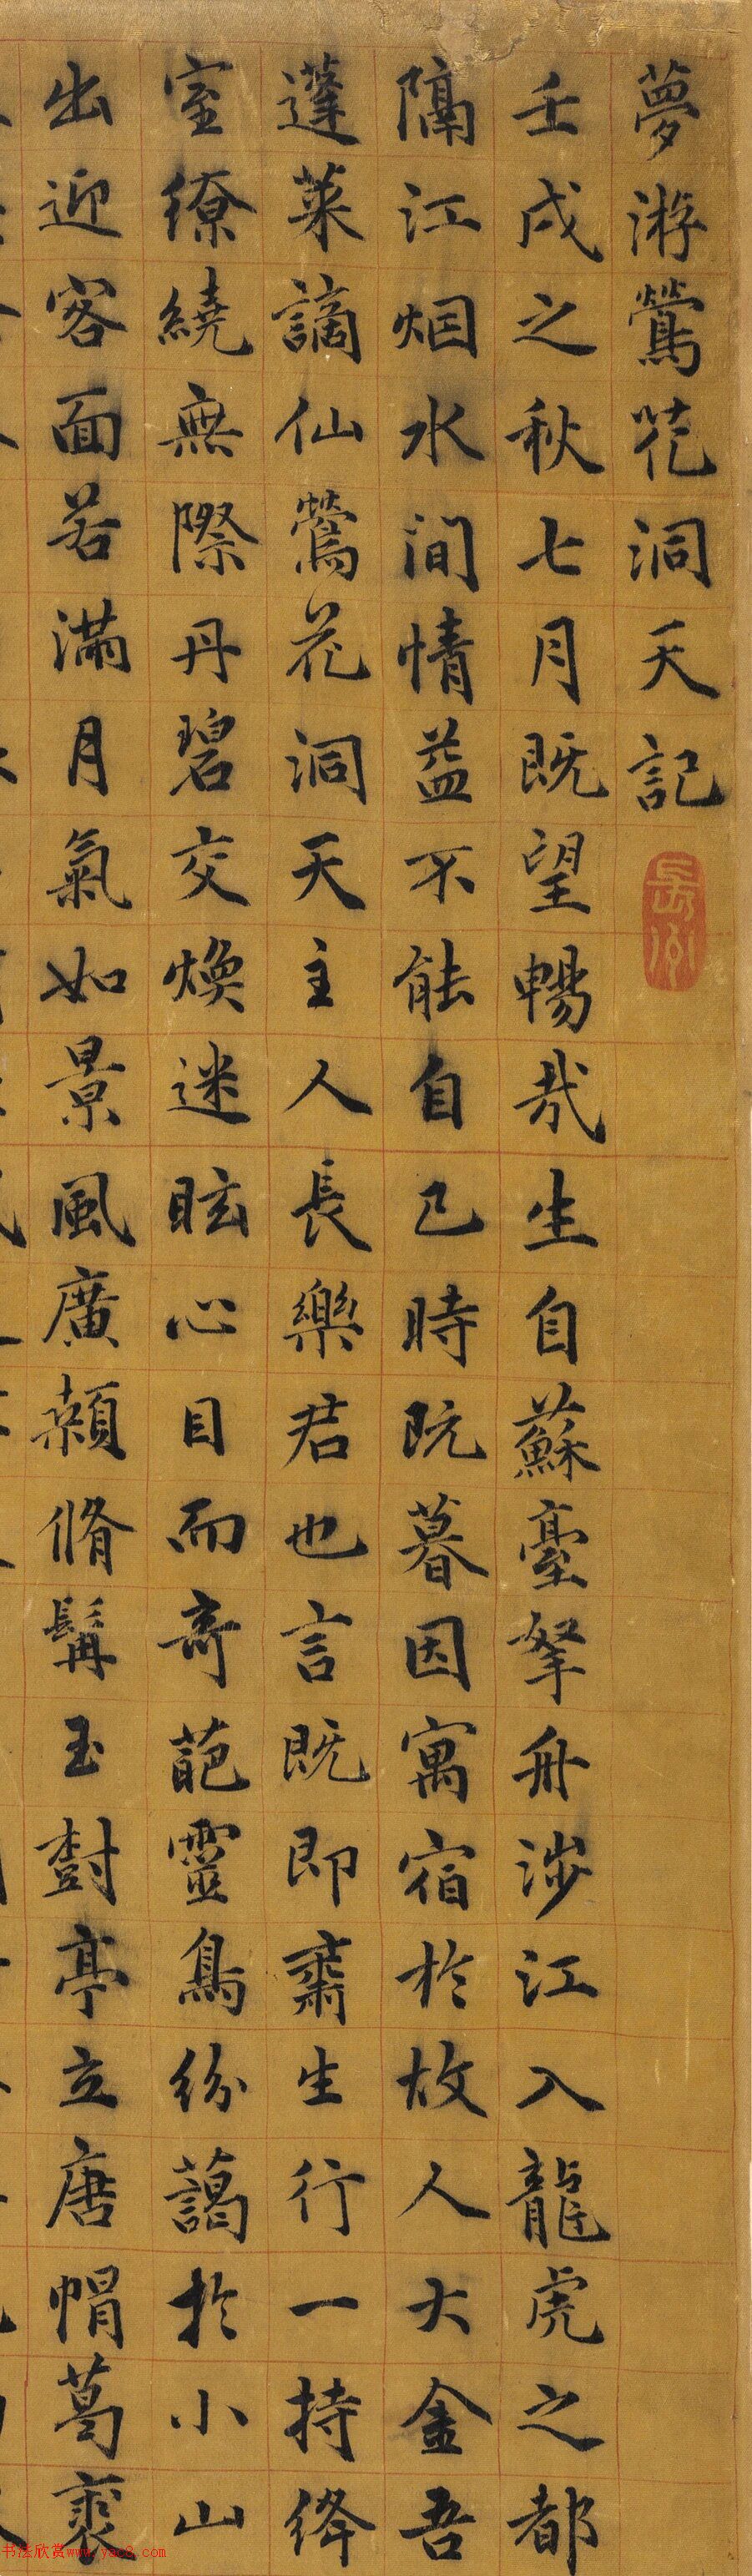 夢游鶯花洞天記
壬戌之秋七月既望暢哉生自蘇臺拏舟涉江入龍虎之都
隔江烟水間情益不能自已時既暮因寓宿於故人大金吾
蓬萊謫仙鶯花洞天主人長樂君也言既即肅生行一持絳
室繚繞無際丹碧交煥迷眩心目而奇葩靈鳥紛藹於小山
出迎客面若滿月氣如景風廣顙脩髯玉樹亭立唐帽葛裘
书法欣赏www.yac8.com